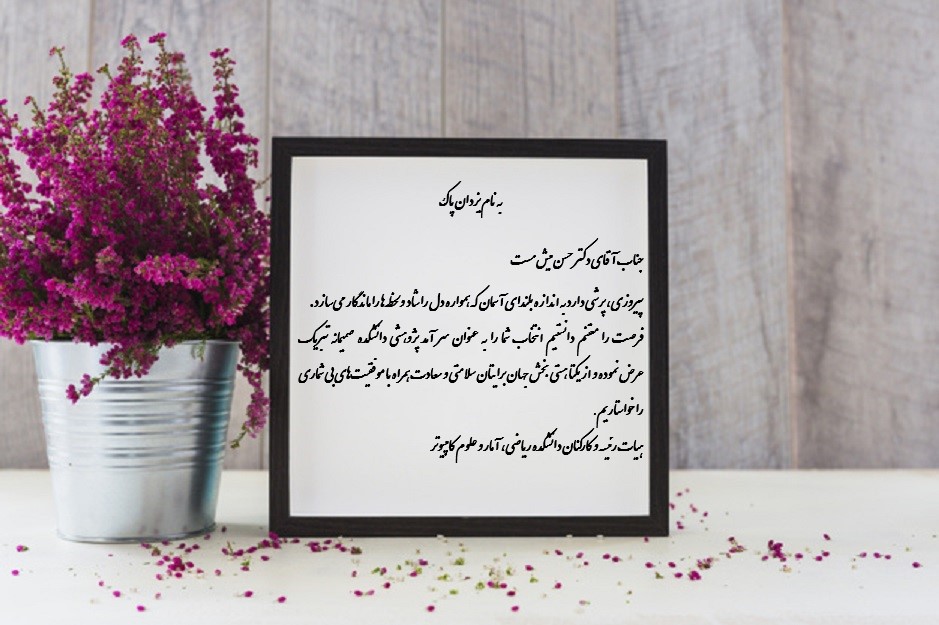 به نام یزدان پاک
جناب آقای دکتر حسن میش مست
پیروزی، پرشی دارد به اندازه بلندای آسمان که همواره دل را شاد و لحظه ها را ماندگار می سازد.
فرصت را مغتنم دانستیم انتخاب شما را به عنوان سرآمد پژوهشی دانشکده صمیمانه تبریک
عرض نموده و از یکتا هستی بخش جهان برایتان سلامتی و سعادت همراه با موفقیت های بی شماری
را خواستاریم.
هیات رئیسه و کارکنان دانشکده ریاضی، آمار و علوم کامپیوتر